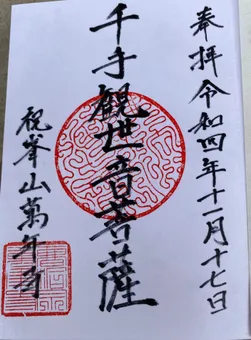 奉拝令和四年十一月十七日
千手観世音菩薩
祝峯山萬年寺